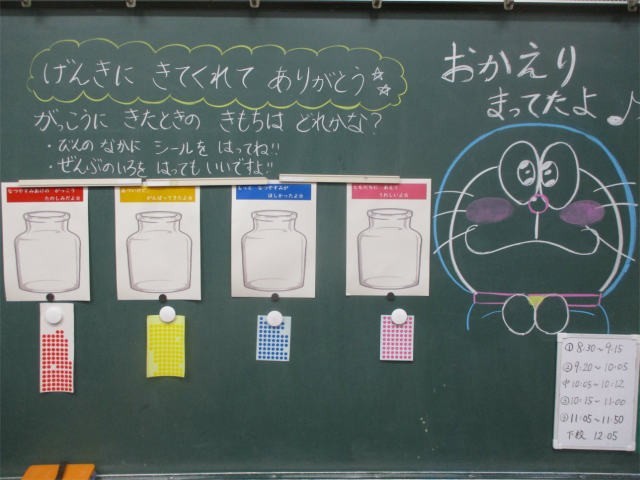 げんきに きてくれて ありがとう
がっこうに きたときの きもちは どれかな?
・びんの なかに シールを はってね!!
・ぜんぶのいろを はっても いいですよ!!
おかえり
まってたよ♪
なつやすみあけの がっこう
たのしみだよ☆
あついけど、
がんばってきたよ☆
もっと なつやすみが
ほしかったよ☆
ともだちに あえて
うれしいよ☆
①8:30~9:15
②9:20~10:05
中10:05~10:12
③10:15~11:00
④11:05~11:50
下校 12:05